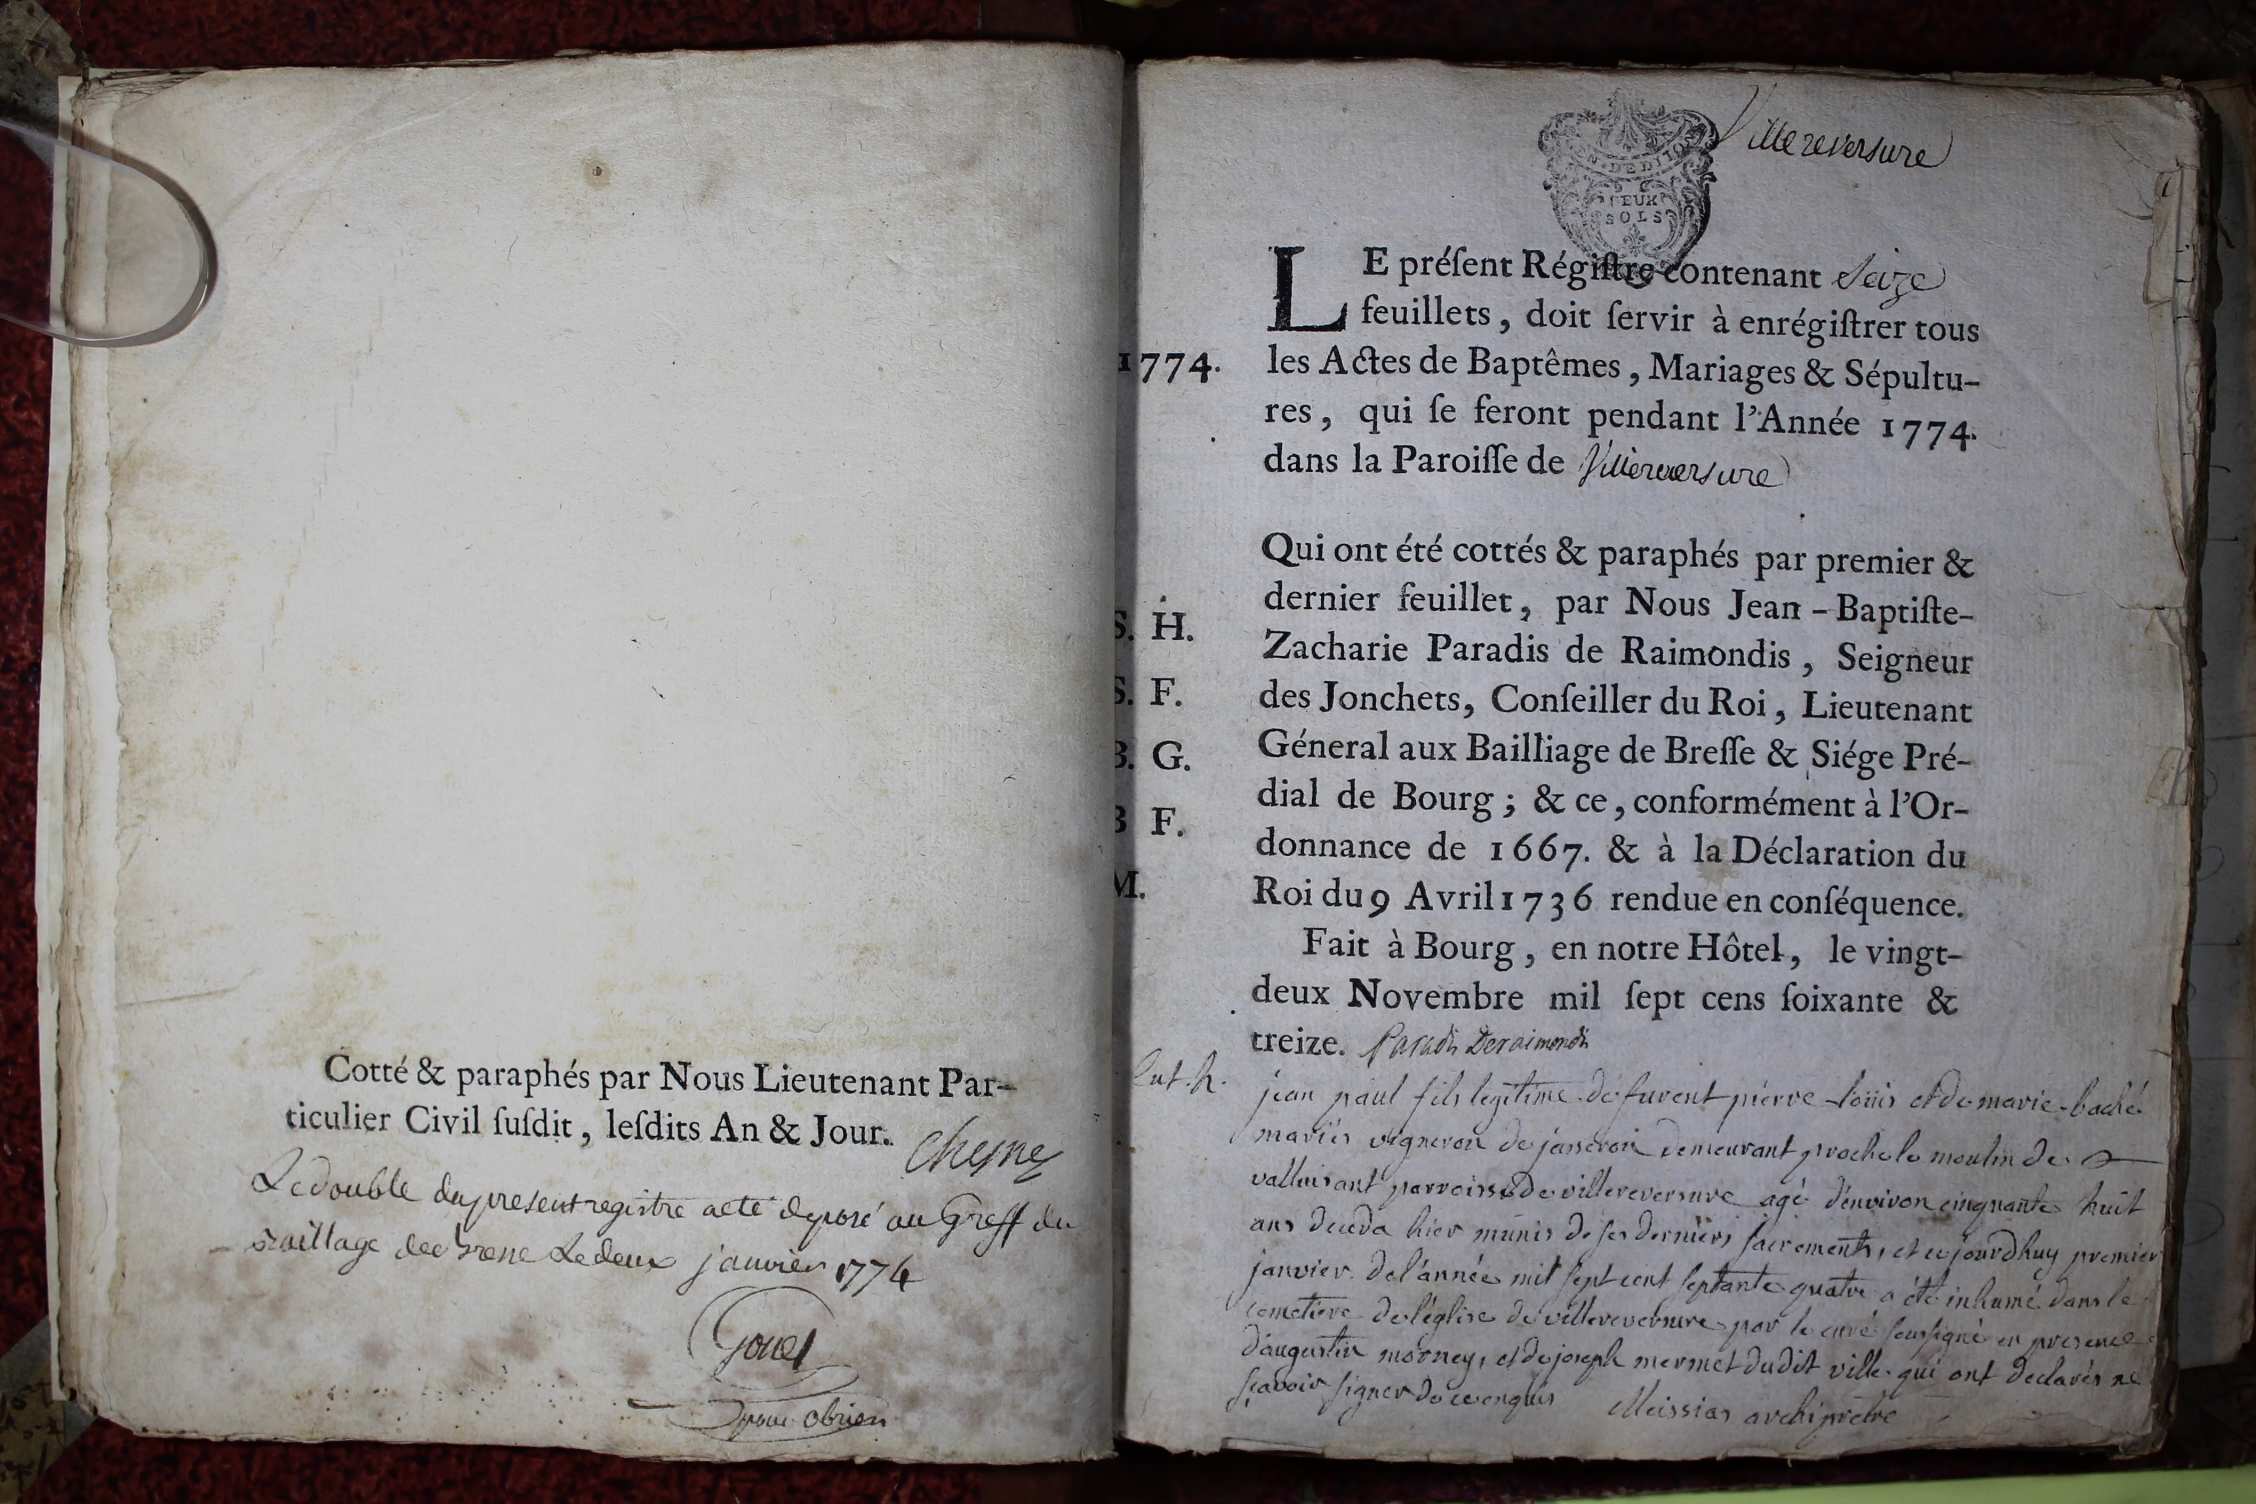 Cotté & paraphés par Nous Lieutenant Par-
ticulier Civil ſuſdit, leſdits An & Jour.
Le double du present registre a eté deposé au Greff du
le deux janvier 1774
pour obrien
Villereversure
DEUX
SOLS
LE préſent Régiſtre contenant seize
feuillets, doit ſervir à enrégiſtrer tous
1774.
les Actes de Baptêmes, Mariages & Sépultu-
res, qui ſe feront pendant l'Année 1774.
dans la Paroiſſe de Villereversure
Qui ont été cottés & paraphés par premier &
dernier feuillet, par Nous Jean-Baptiſte-
S. H.
Zacharie Paradis de Raimondis, Seigneur
S. F.
des Jonchets, Conſeiller du Roi, Lieutenant
B. G.
Géneral aux Bailliage de Breſſe & Siége Pré-
dial de Bourg; & ce, conformément à l'Or-
B F.
donnance de 1667. & à la Déclaration du
M.
Roi du 9 Avril 1736 rendue en conſéquence.
Fait à Bourg, en notre Hôtel, le vingt-
deux Novembre mil ſept cens ſoixante &
treize. Paradis Deraimondis
jean paul fils legitime de furent pierre loüis et de marie baché
mariés vigneron de jasseron demeurant proche le moulin de
valluisant parroisse de villereversure agé d'environ cinquante huit
ans deceda hier munis de ses derniers sacrements, et cejourdhuy premier
janvier de l'année mil sept cent septante quatre a été inhumé dans le
cemetiere de l'église de villereversure par le curé soussigné en presence
d'augustin morney, et de joseph mermet dudit ville qui ont declarés ne
sçavoir signer de ce enquis Meissias archiprêtre